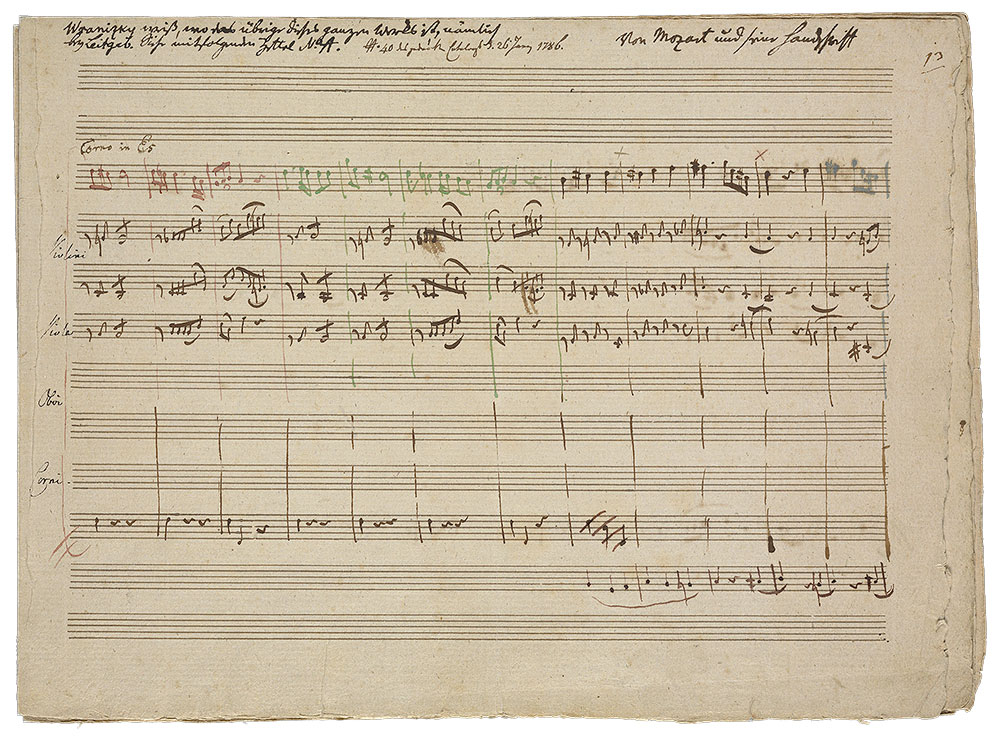 Wranizky weiß, wo das übrige dieses ganzen Werks ist, nämlich
bey Leitgeb. Siehe mitfolgenden Zettel
N° 40 des gedruckten 26 Juny 1786.
Von Mozart und seiner Handschrift
13
Corno in Es
Violini
Viola
Oboi
Corni